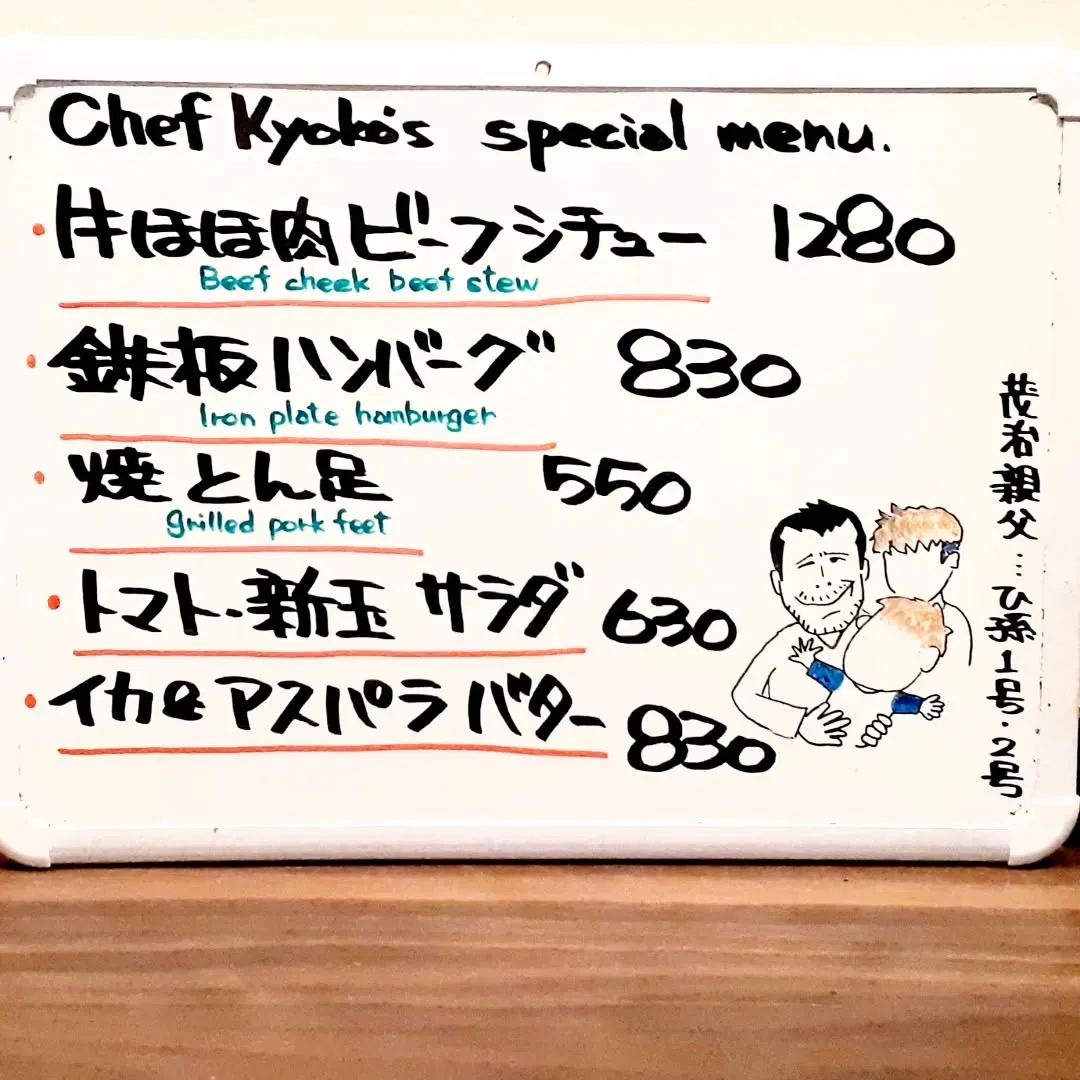 Chef Kyoko's special menu.
・牛ほほ肉ビーフシチュー 1280
Beef cheek beef stew
・鉄板ハンバーグ 830
Iron plate hamburger
・焼とん足 550
grilled pork feet
・トマト・新玉サラダ 630
・イカ&アスパラバター 830
茂治親父…ひ孫1号・2号